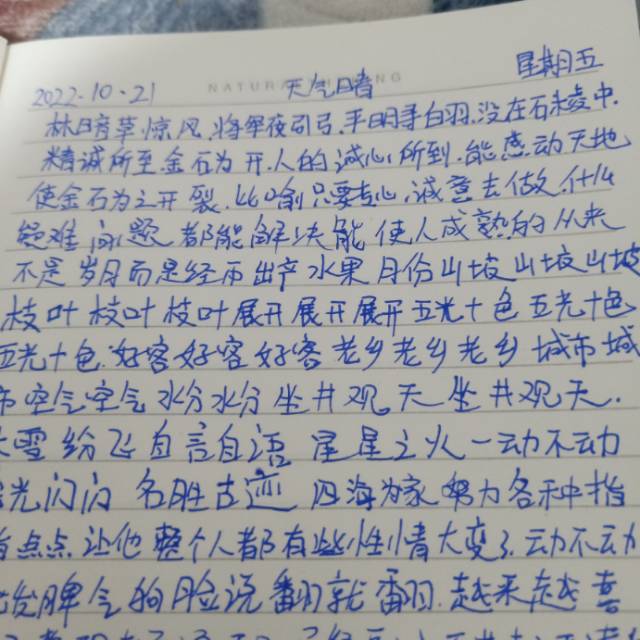 NATURA NG
2022·10·21 天气日青 星期五
林日音草惊风,将军夜引弓,平明寻白羽,没在石棱中.
精诚所至金石为开.人的诚心所到,能感动天地
使金石为之开裂.比喻只要专心诚意去做,什么
疑难问题都能解决能使人成熟的从来
不是岁月而是经历出产水果月份山坡山坡山坡
枝叶枝叶枝叶展开展开展开五光十色五光十色
五光十色.好客好客好客老乡老乡老乡城市城
市空气空气水分水分坐井观天坐井观天.
雪纷飞自言自语星星之火一动不动
光闪闪名胜古迹四海为家努力各种指
指点点.让他整个人都有些性情大变了.动不动
发脾气的脸说翻就翻.越来越喜